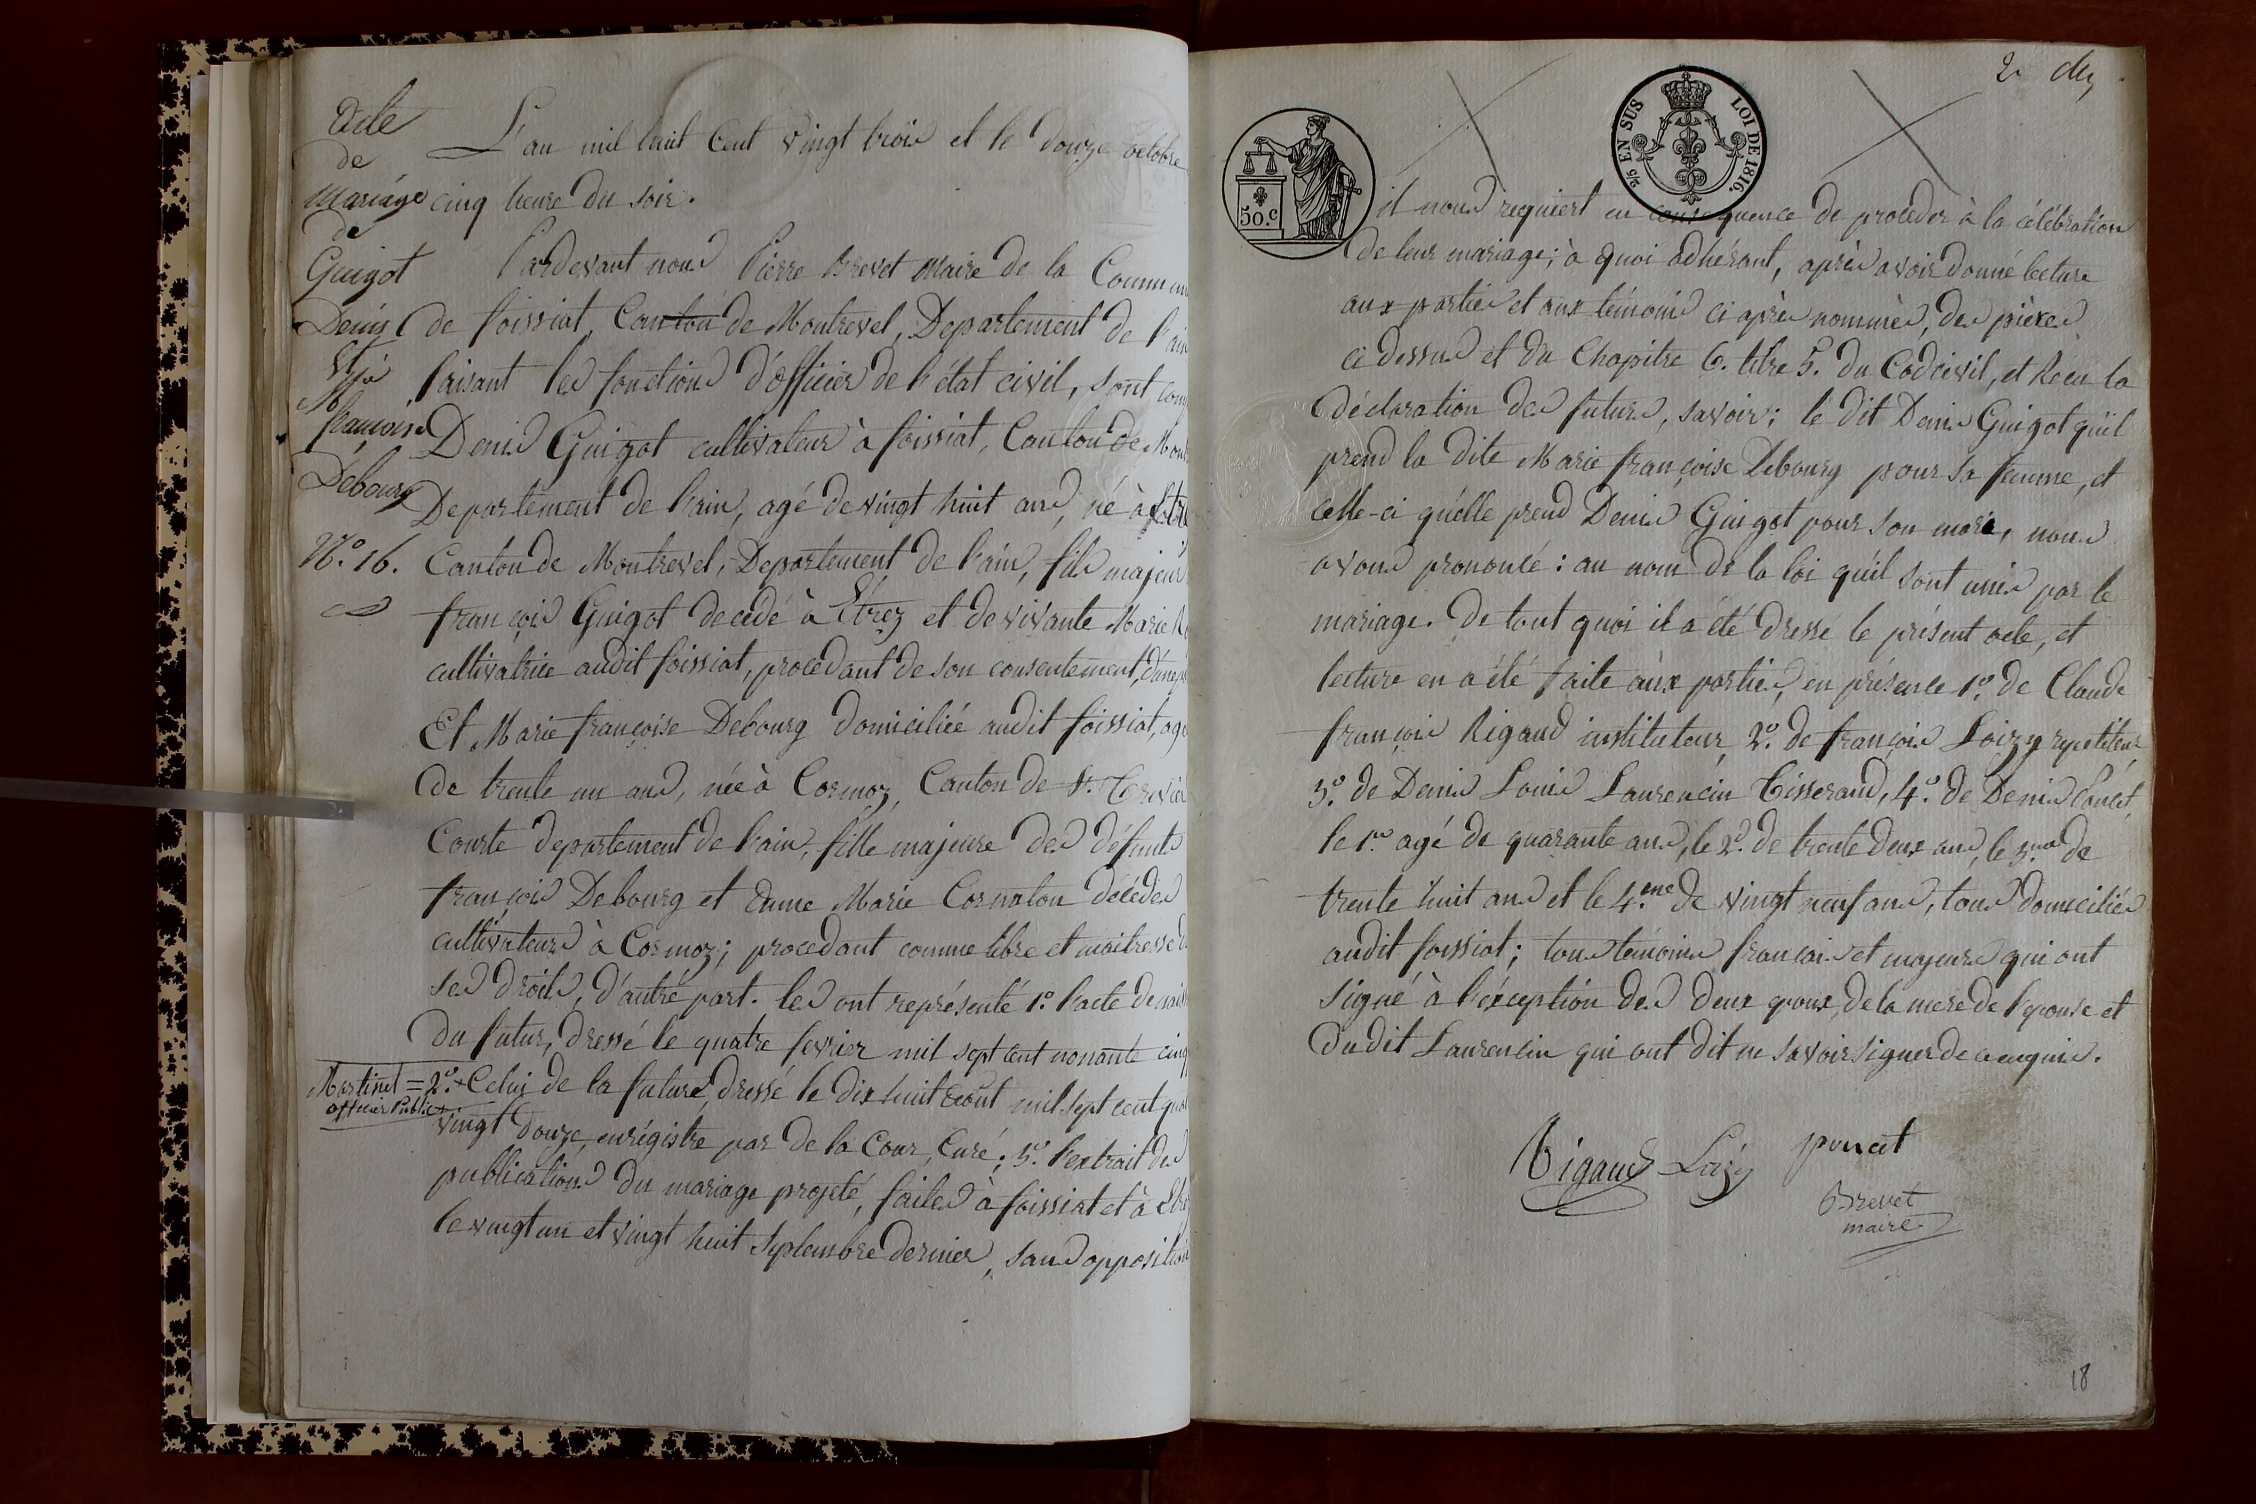 acte
de
Mariage
de
Guigot
Denis
&
Mie
françoise
Debourg
N.° 16.
L'an mil huit Cent vingt trois et le douze octobre
cinq heure du soir.
Pardevant nous Pierre Brevet Maire de la Commun
de foissiat, Canton de Montrevel, Departement de l'ain
faisant les fonctions d'officier de l'état civil, sont com
Denis Guigot cultivateur à foissiat, Canton de Mont
Departement de l'ain, agé de vingt huit ans, né à Etre
Canton de Montrevel, Departement de l'ain, fils majeur
françois Guigot decédé à Etrez et de vivante Marie
cultivatrice audit foissiat, procedant de son consentement, d'une p
Et Marie françoise Debourg domiciliée audit foissiat, agé
de trente un ans, née à Cormoz, Canton de St. Trivier
Courte departement de l'ain, fille majeure des défunts
françois Debourg et dame Marie Cornaton décédés
cultivateurs à Cormoz; procedant comme libre et maitresse d
ses droits, d'autre part. les ont représenté 1.° l'acte de nais
du futur, dressé le quatre fevrier mil sept cent nonante cinq
Martinet =
officier Public
2.° + Celui de la future, dressé le dix huit aout mil sept cent qua
vingt douze, enrégistré par de la Cour, Curé; 3.° l'extrait des
publications du mariage projeté, failes à foissiat et à Etre
le vingt un et vingt huit Septembre dernier, sans opposition
2
50.c
2/5 EN SUS
LOI DE 1816.
il nous requiert en consequence de proceder à la célébration
de leur mariage; à quoi adhérant, après avoir donné lecture
aux parties et aux témoins ci après nommès, des pièces
ci dessus et du Chapitre 6. titre 5. du Codcivil, et Recu la
déclaration des futurs, savoir; le dit Denis Guigot qu'il
prend la dite Marie françoise Debourg pour sa femme, et
celle-ci qu'elle prend Denis Guigot pour son mari, nous
avons prononcé: au nom de la loi qu'il sont unis par le
mariage. De tout quoi il a été dressé le présent acte, et
lecture en a été faite aux parties, en présence 1.° de Claude
françois Rigaud instituteur, 2.° de françois Loizy repetiteur
3.° de Denis Louis Laurencin Tisserand, 4.° de Denis Poncet,
le 1.er agé de quarante ans, le 2.° de trente deux ans, le 3.me de
trente huit ans et le 4.eme de vingt neuf ans, tous domiciliés
audit foissiat; tous témoins françois et majeurs qui ont
signé à l'éxception des deux epoux, de la mere de l'epouse et
dudit Laurencin qui ont dit ne savoir signer de ce enquis.
Rigaud Loizy poncet
Brevet
maire
18